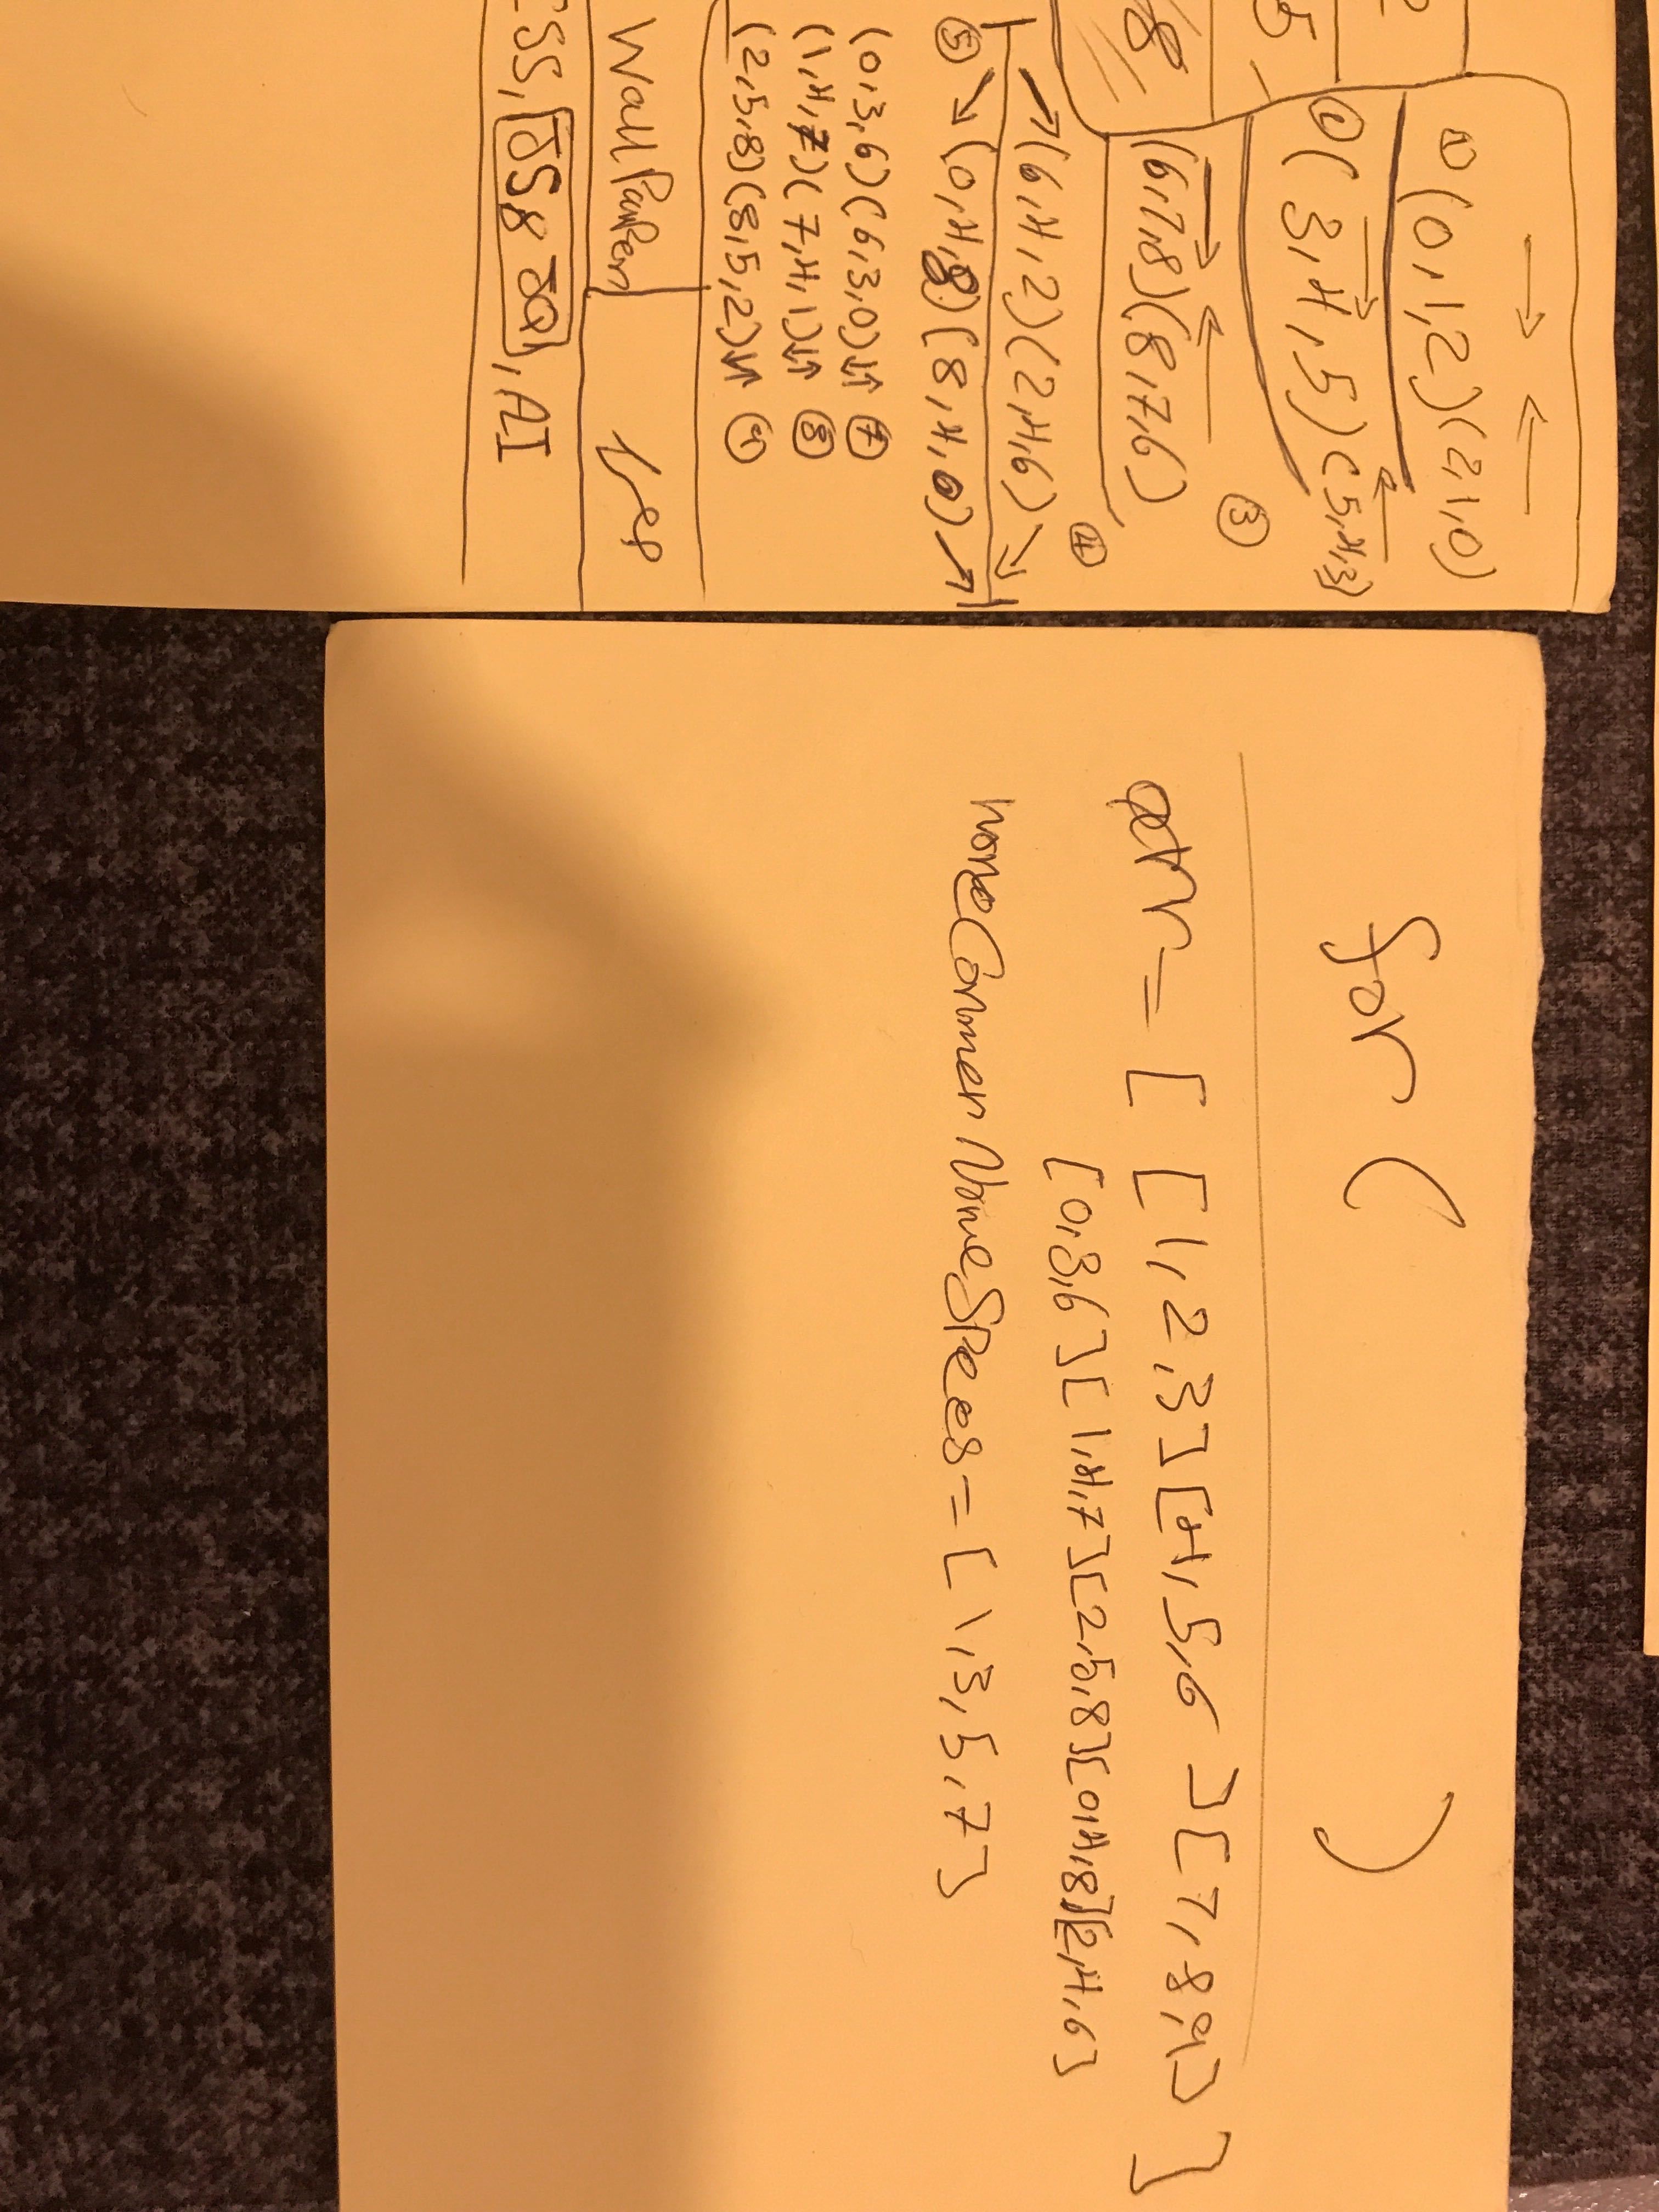 2
5
8
→ ←
① (0,1,2)(2,1,0)
(3,4,5)(5,4,3)
(6,7,8)(8,7,6) ③
④
↗(6,4,2)(2,4,6)↘
⑤ ↘(0,4,8)(8,4,0)↗
(0,3,6)(6,3,0)↓↑ ⑦
(1,4,7)(7,4,1)↓↑ ⑧
(2,5,8)(8,5,2)↓↑ ⑨
WallPaper yes
CSS, JS & JQ, AI
for ( )
arr = [ [1,2,3][4,5,6][7,8,9]
[0,3,6][1,4,7][2,5,8][0,4,8][2,4,6] ]
noneCornerNameSpces = [1,3,5,7]